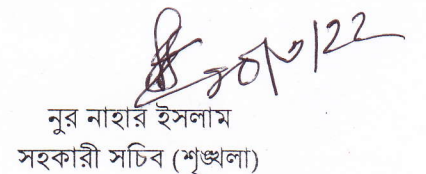 নুর নাহার ইসলাম
সহকারী সচিব (শৃঙ্খলা)